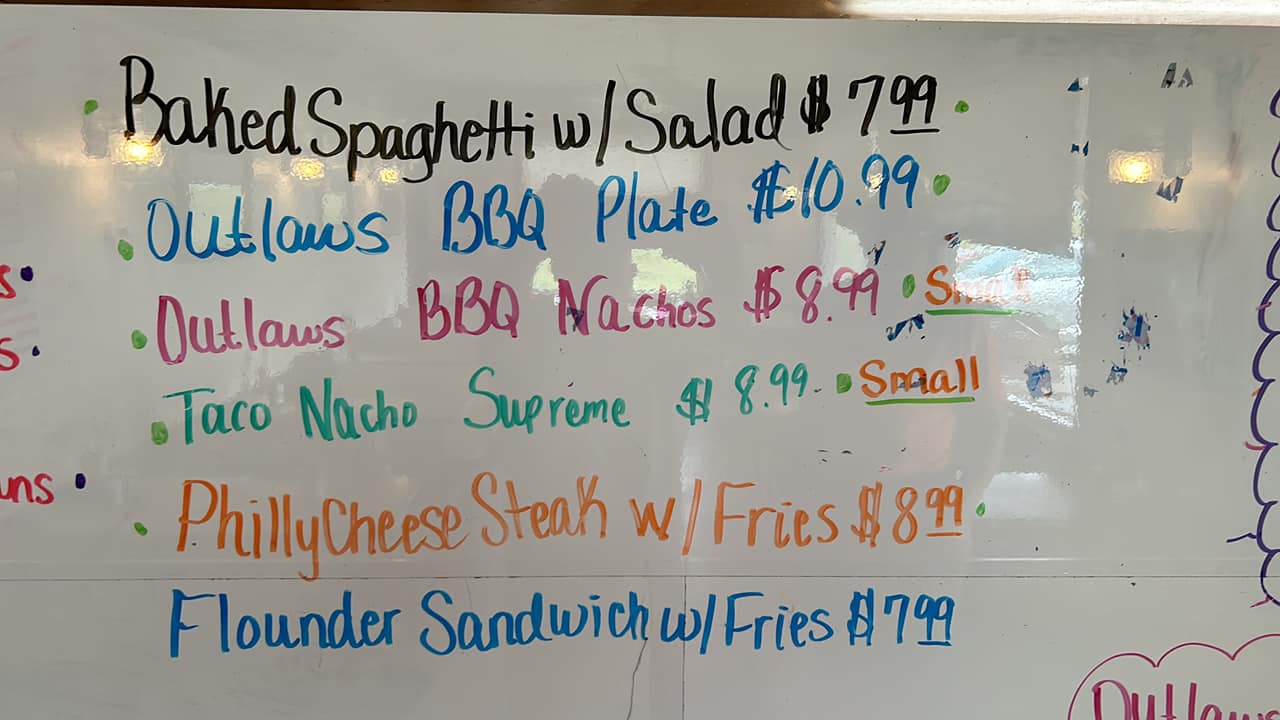 Baked Spaghetti w/ Salad $ 7 99
Outlaws BBQ Plate $10.99
Outlaws BBQ Nachos $ 8.99 Small
Taco Nacho Supreme $ 8.99 Small
Philly Cheese Steak w/ Fries $ 8 99
Flounder Sandwich w/ Fries $ 7 99
Outlaws